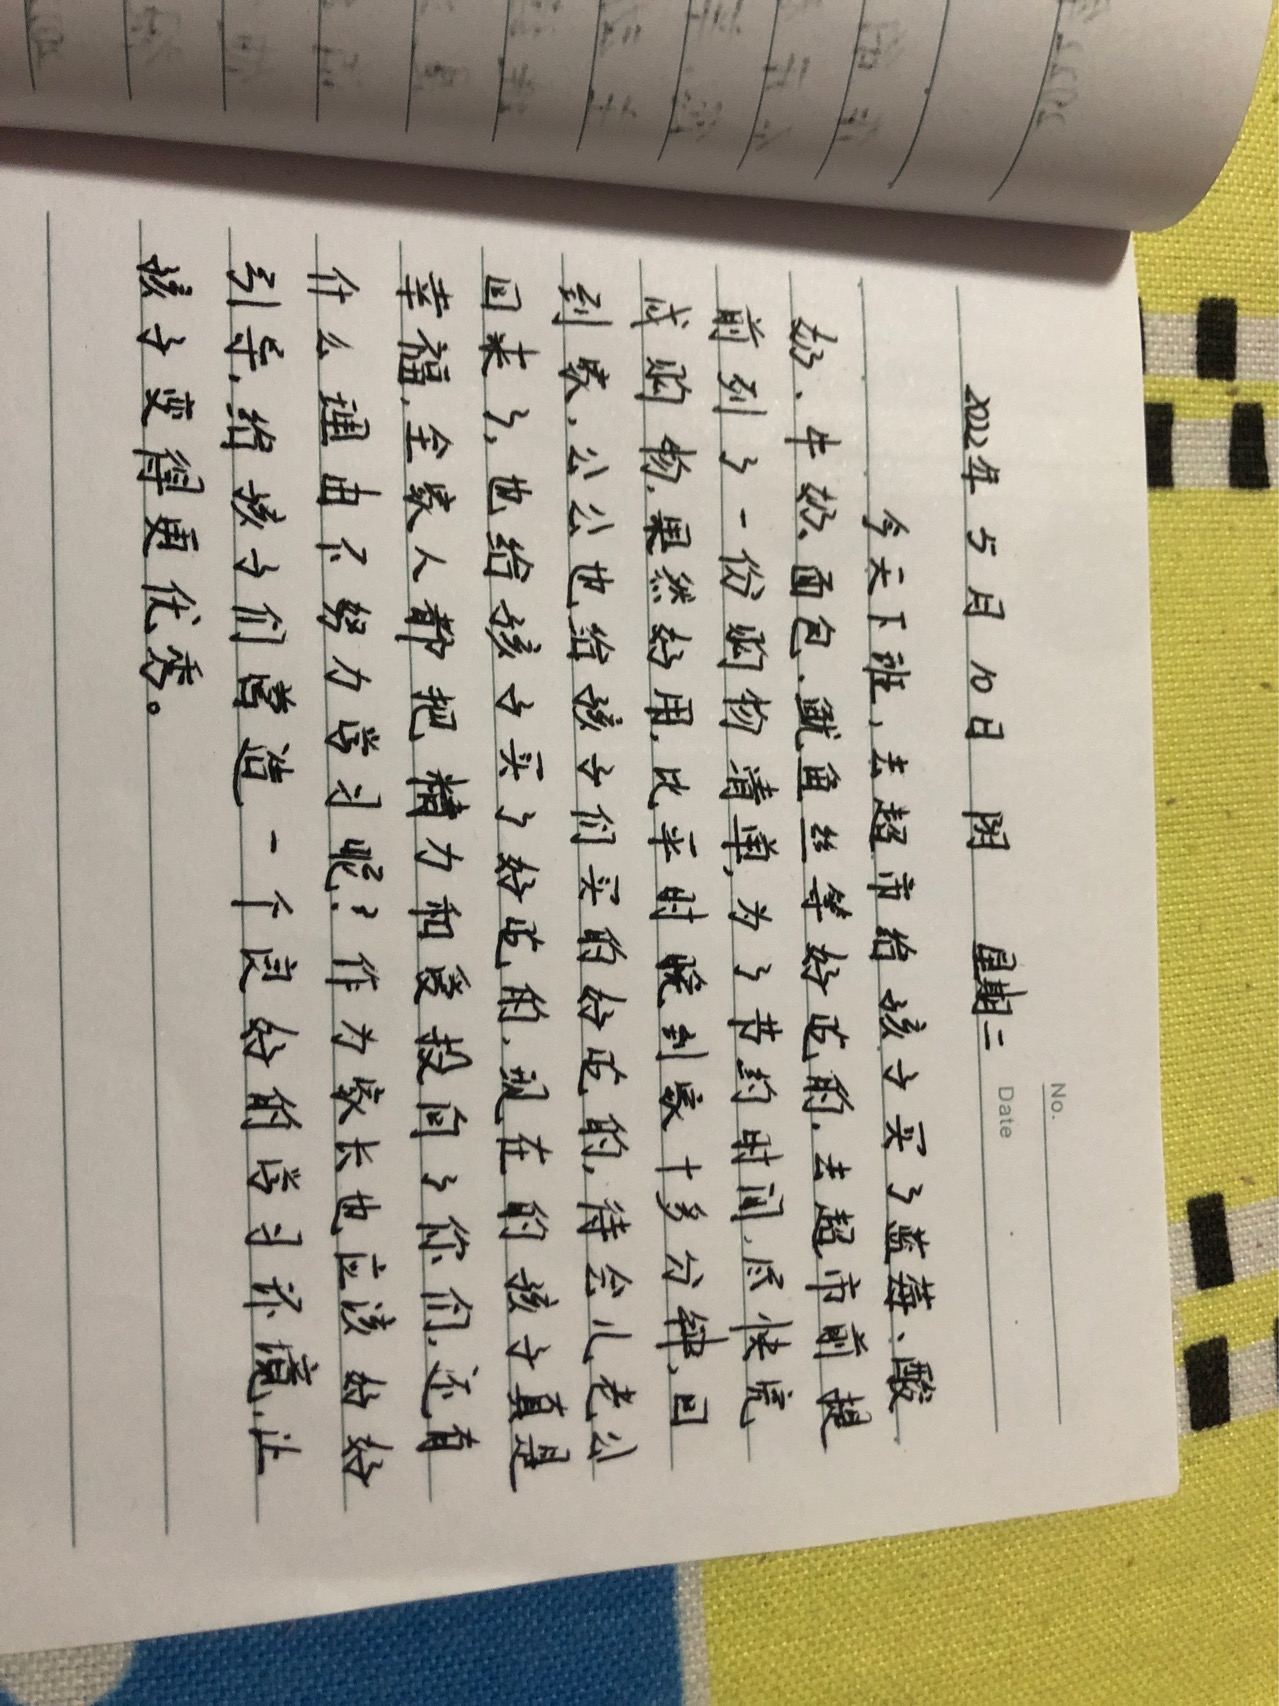 No.
Date
2022年 5月 10日 阴 星期二
今天下班,去超市给孩子买了蓝莓、酸
奶、牛奶、面包、鱿鱼丝等好吃的,去超市前提
前列了一份购物清单,为了节约时间,尽快完
成购物,果然好用,比平时晚到家十多分钟,回
到家,公公也给孩子们买的好吃的,待会儿老公
回来了,也给孩子买了好吃的,现在的孩子真是
幸福,全家人都把精力和爱投向了你们,还有
什么理由不努力学习呢?作为家长也应该好好
引导,给孩子们营造一个良好的学习环境,让
孩子变得更优秀。